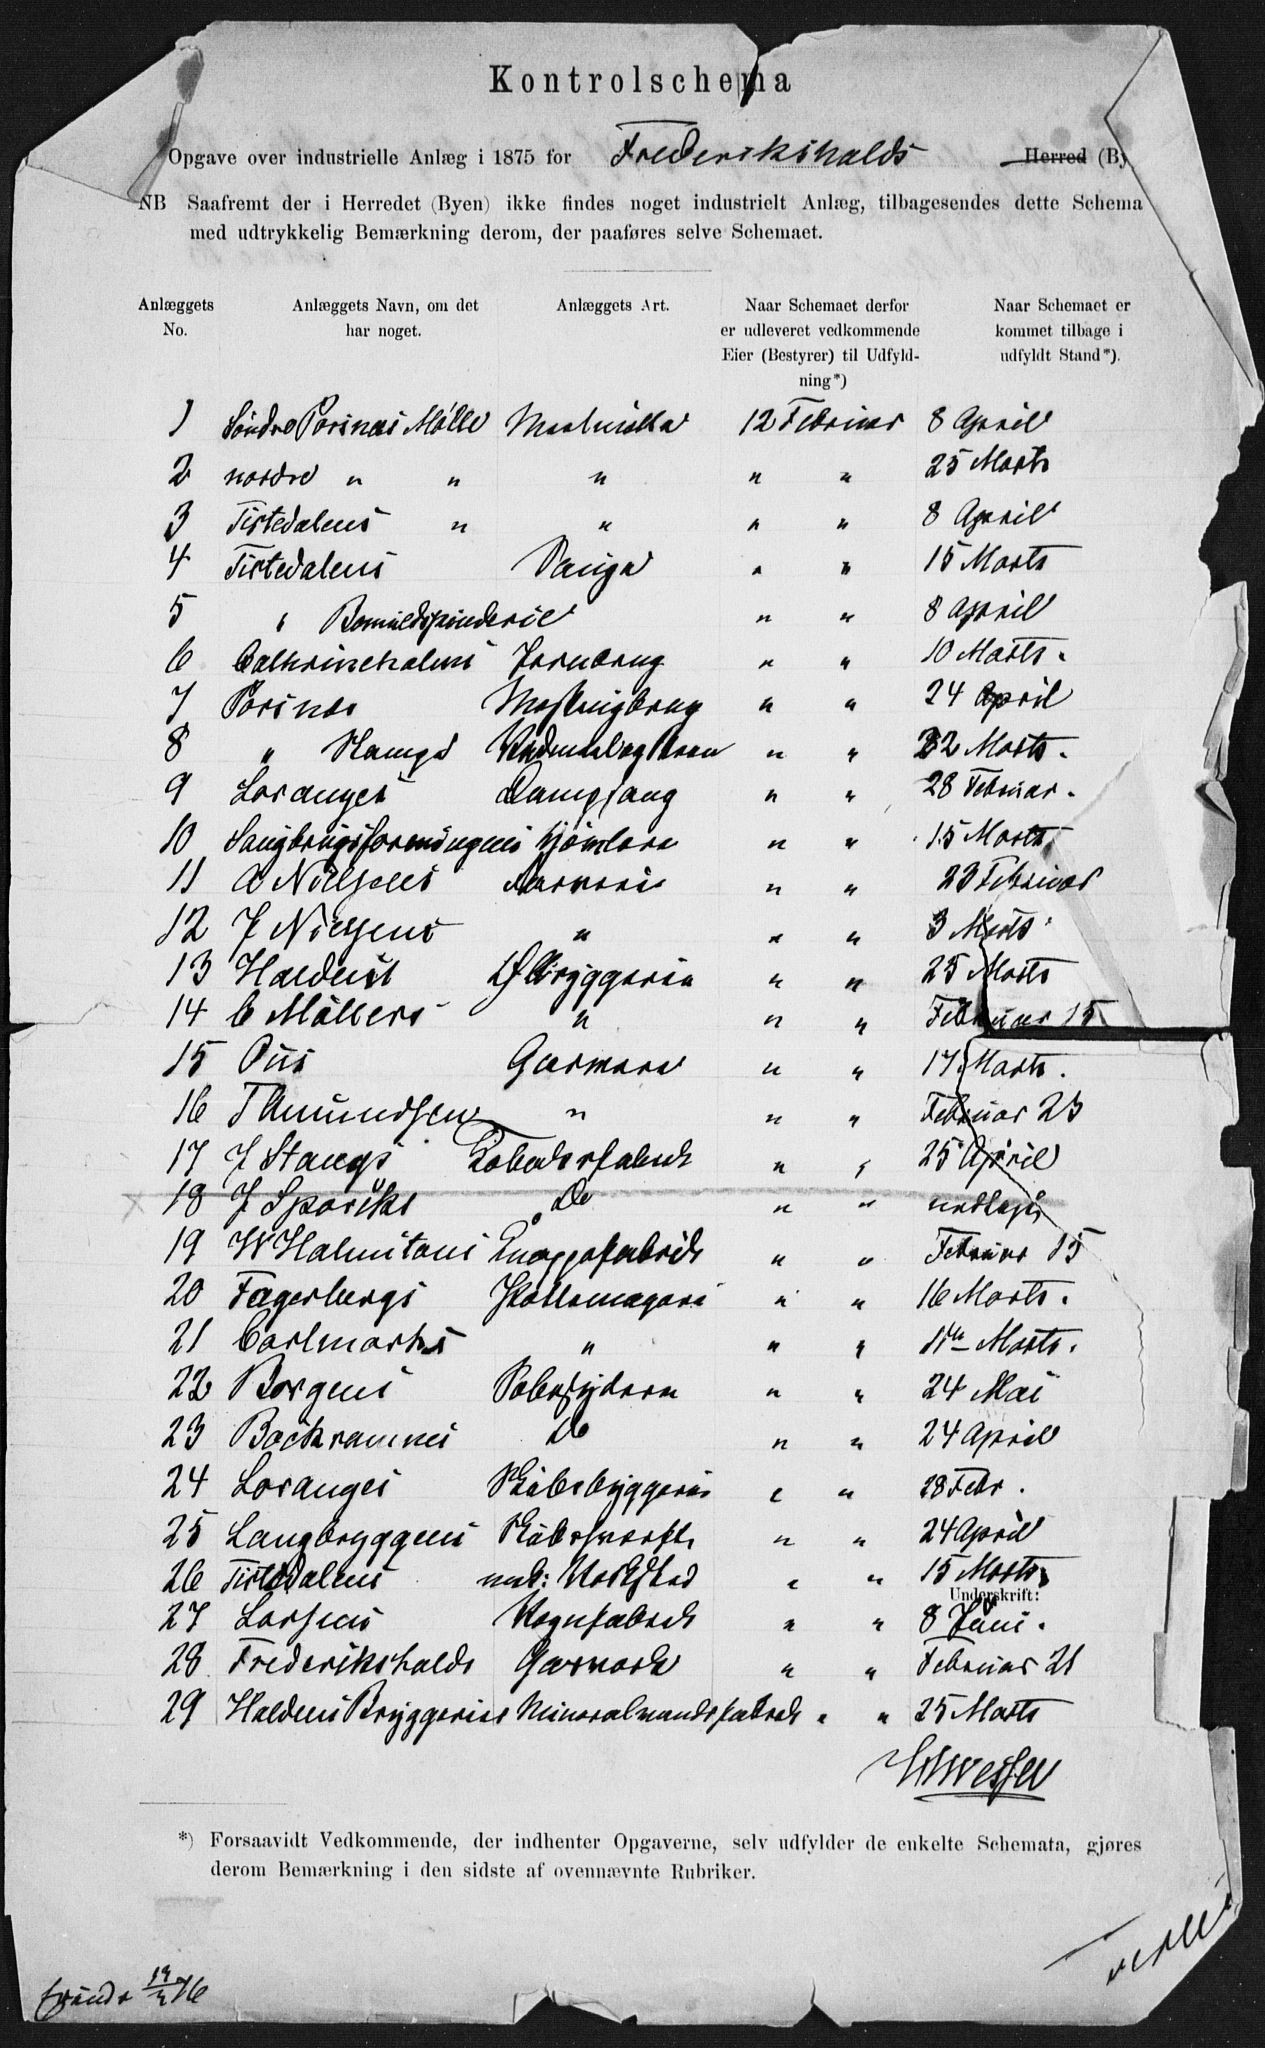 Kontrolschema
Opgave over industrielle Anlæg i 1875 for Frederikshalds Herred (By
NB Saafremt der i Herredet (Byen) ikke findes noget industrielt Anlæg, tilbagesendes dette Schema
med udtrykkelig Bemærkning derom, der paaføres selve Schemaet.
Anlæggets No. Anlæggets Navn, om det har noget. Anlæggets Art. Naar Schemaet derfor er udleveret vedkommende Eier (Bestyrer) til Udfyldning*) Naar Schemaet er kommet tilbage i udfyldt Stand*).
1 Søndre Porsnæs Mölle Melmölle 12 Februar 8 April
2 nordre " " " " " 25 Marts
3 Tistedalens " " " " 8 April
4 Tistedalens Sauge " " 15 Marts
5 " Bomuldspinderie " " 8 April
6 Cathrineholms Jernbrug " " 10 Marts.
7 Porsnæs " " 24 April
8 " Stangs " " 22 Marts.
9 Loranges Dampsaug " " 28 Februar.
10 Saugbrugsforeningens " " 15 Marts.
11 Nielsens Garveri " " 23 Februar
12 J Nielsens " " " 3 Marts
13 Haldens Ølbryggerie " " 25 Marts
14 C Møllers " " " Februar 15
15 Piis Garveri " " 17 Marts.
16 T Amundsen " " " Februar 23
17 J Stangs Tobaksfabrik " " 25 April
18 J Sparchs Do " " nedlagt
19 W Halmstons Knappefabrik " " Februar 15
20 Fagerbergs Pottemageri " " 16 Marts.
21 Carlmarks " " " 11te Marts.
22 Borgens Sæbesyderi " " 24 Mai
23 Backrammes Do " " 24 April
24 Loranges Skibsbyggeri " " 28 Febr.
25 Langbryggens Skibsværft " " 24 April
26 Tistedalens mek: Værksted " " 15 Marts
Underskrift:
27 Larsens Vognfabrik " " 8 Juni.
28 Frederikshalds Gasværk " " Februar 21
29 Haldens Bryggeries Mineralvandsfabrik " " 25 Marts
*) Forsaavidt Vedkommende, der indhenter Opgaverne, selv udfylder de enkelte Schemata, gjøres
derom Bemærkning i den sidste af ovennævnte Rubriker.